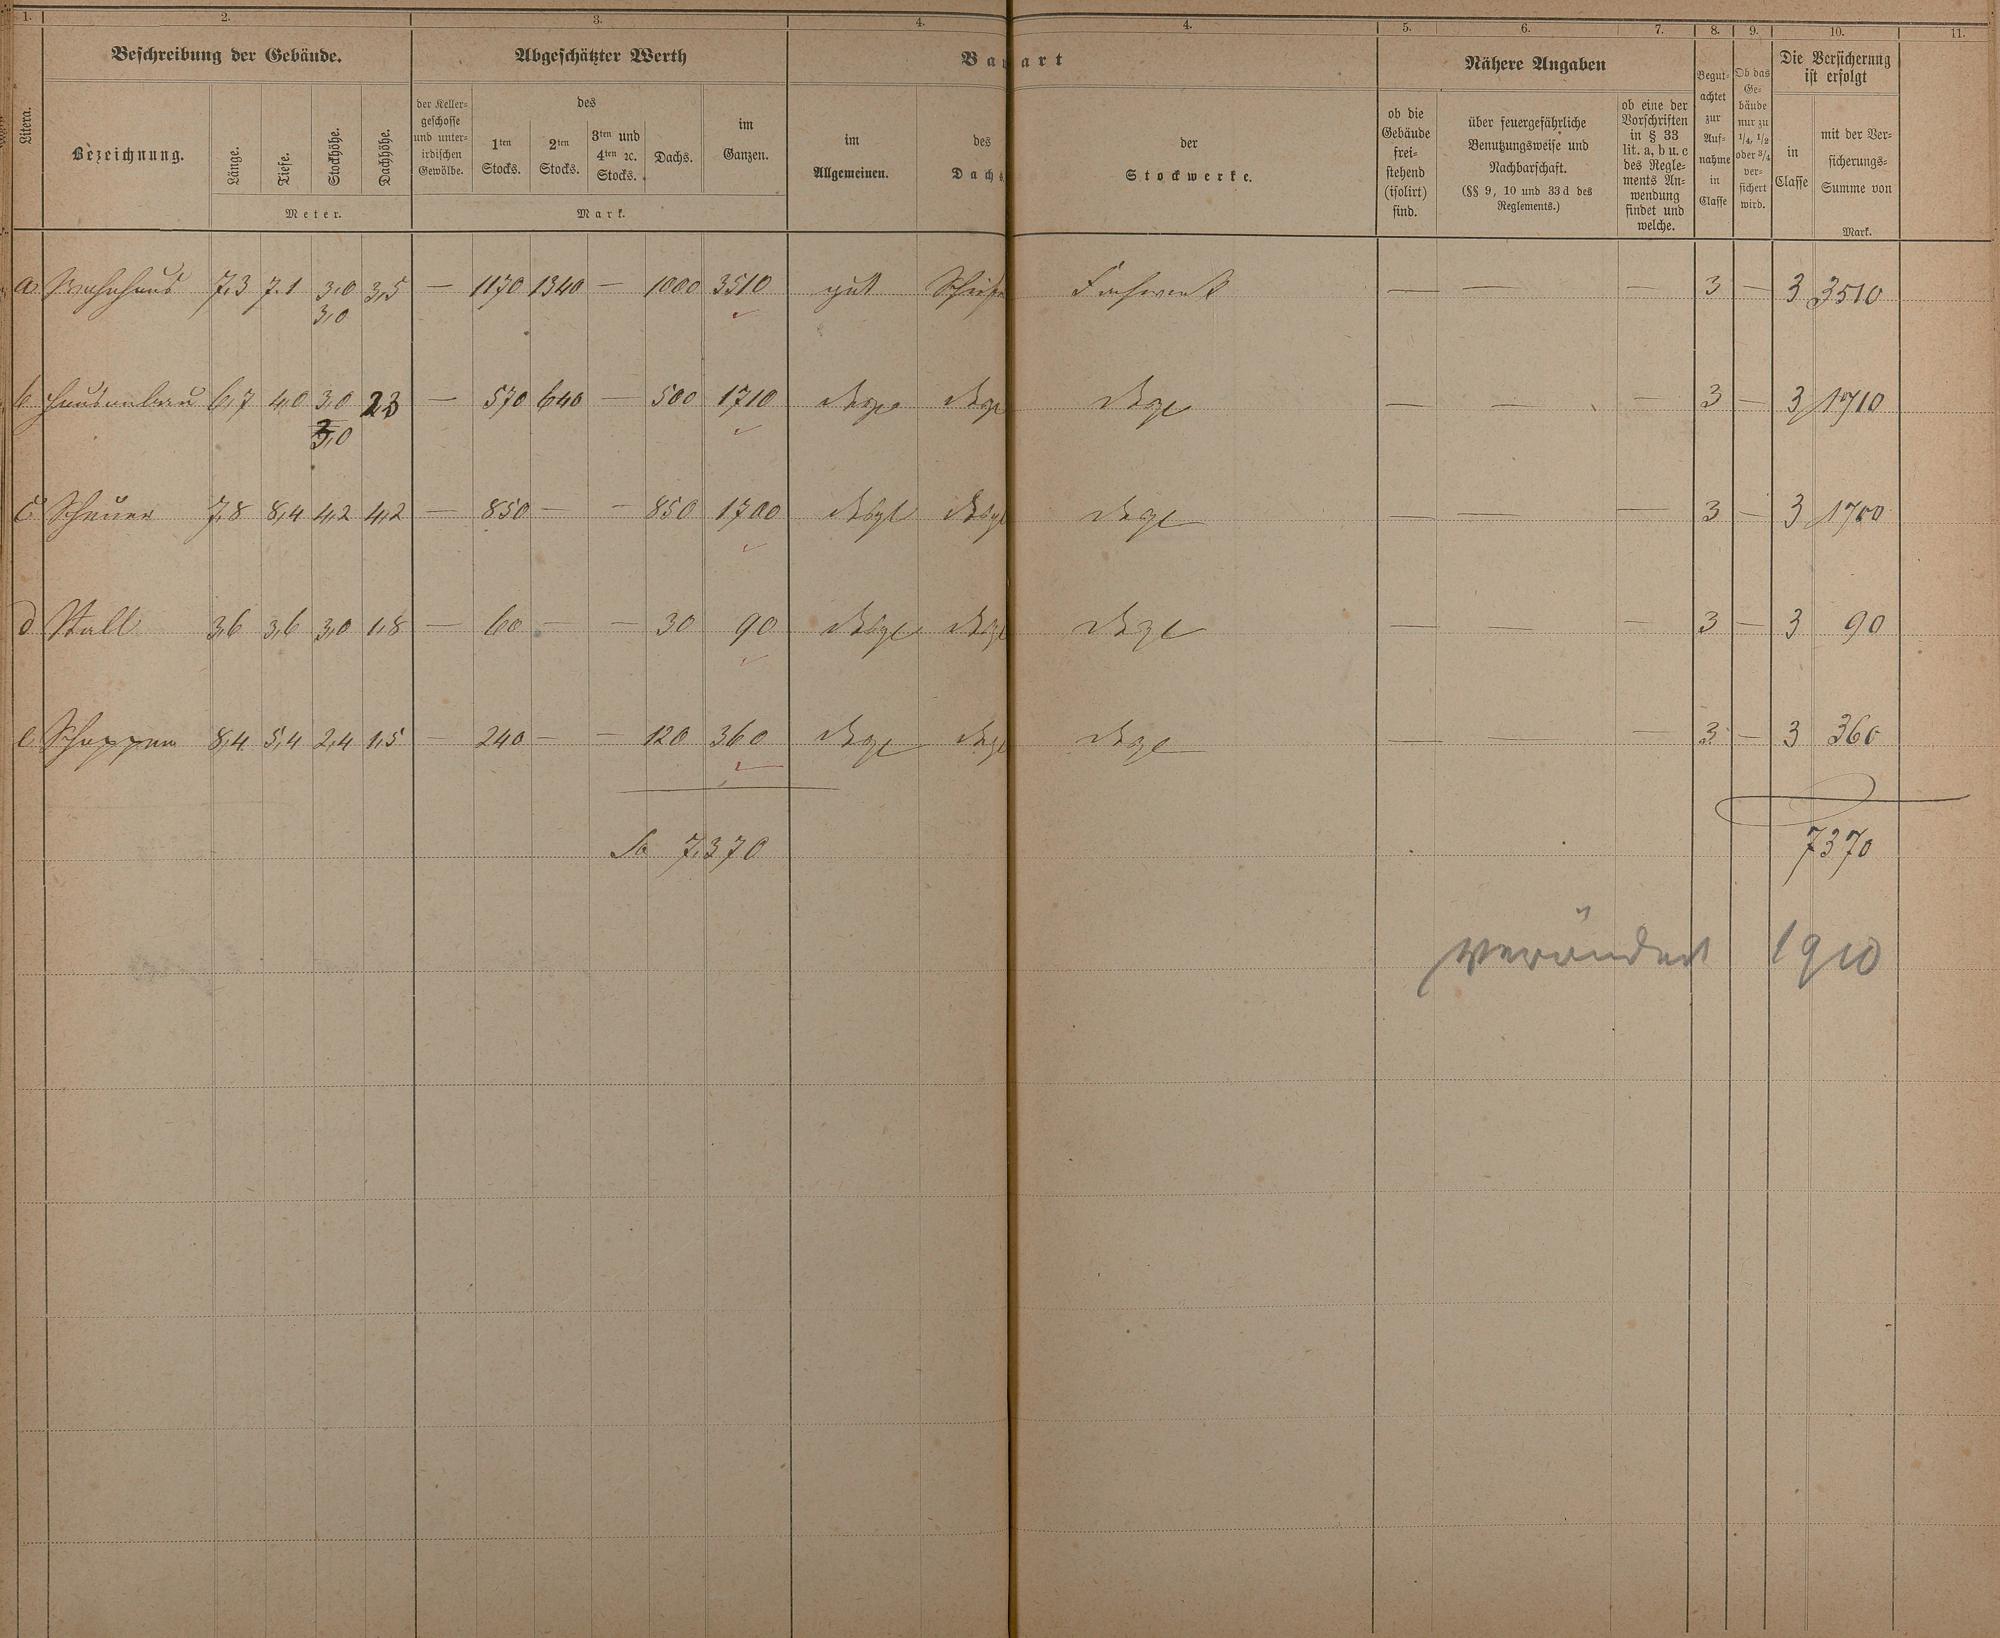 1. 2. 3. 4. 4. 5. 6. 7. 8. 9. 10. 11.
Beschreibung der Gebäude. Abgeschätzter Werth Bauart Nähere Angaben Die Versicherung ist erfolgt
Litera. Bezeichnung. Länge. Tiefe. Stockhöhe. Dachhöhe.
Meter.
der Keller-
geschosse
und unter-
irdischen
Gewölbe.
des
1ten Stocks. 2ten Stocks. 3ten und 4ten ꝛc. Stocks. Dachs.
im Ganzen.
Mark.
im Allgemeinen. des Dachs. der Stockwerke.
ob die
Gebäude
frei-
stehend
(isolirt)
sind.
über feuergefährliche
Benutzungsweise und
Nachbarschaft.
(§§ 9, 10 und 33 d des
Reglements.)
ob eine der
Vorschriften
in § 33
lit. a, b u. c
des Regle-
ments An-
wendung
findet und
welche.
Begut-
achtet
zur
Auf-
nahme
in
Classe
Ob das
Ge-
bäude
nur zu
1/4, 1/2
oder 3/4
ver-
sichert
wird.
in
Classe
mit der Ver-
sicherungs-
Summe von
Mark.
a Wohnhaus 7,3 7.1 3,0 3,5 — 1170 1340 — 1000 3510 gut Schiefer Fachwerk — — — 3 — 3 3510
3,0
b Hausanbau 6,7 4,0 3,0 2,3 — 570 640 — 500 1710 — — — 3 — 3 1710
3,0
c Scheuer 7,8 8,4 4,2 4,2 — 850 — — 850 1700 — — — 3 — 3 1700
d Stall 3,6 3,6 3,0 1,8 — 60 — — 30 90 — — — 3 — 3 90
e Schoppen 8,4 5,4 2,4 1,5 — 240 — — 120 360 — — — 3 — 3 360
Sa 7,370 7370
verändert 1910